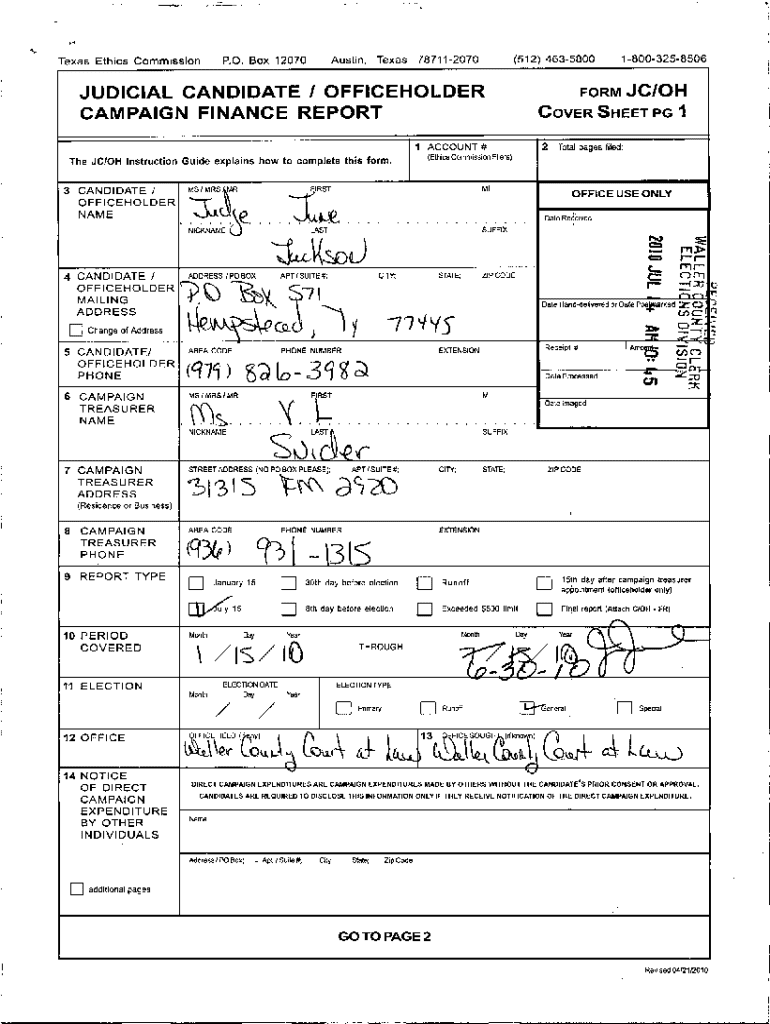 Texas Ethics Commission P.O. Box 12070 Austin, Texas 78711-2070 (512) 463-5800 1-800-325-8506
JUDICIAL CANDIDATE / OFFICEHOLDER
CAMPAIGN FINANCE REPORT
FORM JC/OH
COVER SHEET PG 1
The JC/OH Instruction Guide explains how to complete this form.
1 ACCOUNT #
(Ethics Commission Filers)
2 Total pages filed:
3 CANDIDATE /
OFFICEHOLDER
NAME
MS / MRS / MR FIRST MI
Judge June
NICKNAME LAST SUFFIX
Jackson
OFFICE USE ONLY
Date Received
RECEIVED
WALLER COUNTY CLERK
ELECTIONS DIVISION
2010 JUL 14 AM 10: 45
4 CANDIDATE /
OFFICEHOLDER
MAILING
ADDRESS
Change of Address
ADDRESS / PO BOX APT / SUITE #; CITY; STATE; ZIP CODE
PO Box 571
Hempstead, Tx 77445
Date Hand-delivered or Date Postmarked
5 CANDIDATE/
OFFICEHOLDER
PHONE
AREA CODE PHONE NUMBER EXTENSION
(979) 826-3982
Receipt # Amount
Date Processed
Date Imaged
6 CAMPAIGN
TREASURER
NAME
MS / MRS / MR FIRST MI
Ms. V. L
NICKNAME LAST SUFFIX
7 CAMPAIGN
TREASURER
ADDRESS
(Residence or Business)
STREET ADDRESS (NO PO BOX PLEASE); APT / SUITE #; CITY; STATE; ZIP CODE
31315 FM 2920
8 CAMPAIGN
TREASURER
PHONE
AREA CODE PHONE NUMBER EXTENSION
(936) 931-1315
9 REPORT TYPE
January 15 30th day before election Runoff 15th day after campaign treasurer
appointment (officeholder only)
July 15 8th day before election Exceeded $500 limit Final report (Attach C/OH - FR)
10 PERIOD
COVERED
Month Day Year
1 / 15 / 10
THROUGH
Month Day Year
6-30-10
11 ELECTION
ELECTION DATE
Month Day Year
/ /
ELECTION TYPE
Primary Runoff General Special
12 OFFICE
OFFICE HELD (if any)
Waller County Court at Law
13 OFFICE SOUGHT (if known)
Waller County Court at Law
14 NOTICE
OF DIRECT
CAMPAIGN
EXPENDITURE
BY OTHER
INDIVIDUALS
additional pages
DIRECT CAMPAIGN EXPENDITURES ARE CAMPAIGN EXPENDITURES MADE BY OTHERS WITHOUT THE CANDIDATE'S PRIOR CONSENT OR APPROVAL.
CANDIDATES ARE REQUIRED TO DISCLOSE THIS INFORMATION ONLY IF THEY RECEIVE NOTIFICATION OF THE DIRECT CAMPAIGN EXPENDITURE.
Name
Address / PO Box; Apt. / Suite #; City State; Zip Code
GO TO PAGE 2
Revised 04/21/2010